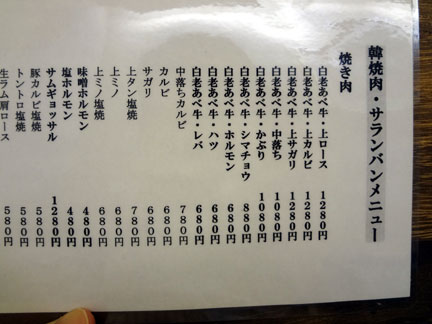 韓焼肉・サランバンメニュー
焼き肉
白老あべ牛・上ロース 1280円
白老あべ牛・上カルビ 1280円
白老あべ牛・上サガリ 1280円
白老あべ牛・中落ち 1080円
白老あべ牛・かぶり 1080円
白老あべ牛・シマチョウ 880円
白老あべ牛・ホルモン 680円
白老あべ牛・ハツ 680円
白老あべ牛・レバ 680円
中落ちカルビ 780円
カルビ 680円
サガリ 680円
上タン塩焼 780円
上ミノ 680円
上ミノ塩焼 680円
味噌ホルモン 480円
塩ホルモン 480円
サムギョッサル 1280円
豚カルビ塩焼 580円
トントロ塩焼 580円
生ラム肩ロース 580円